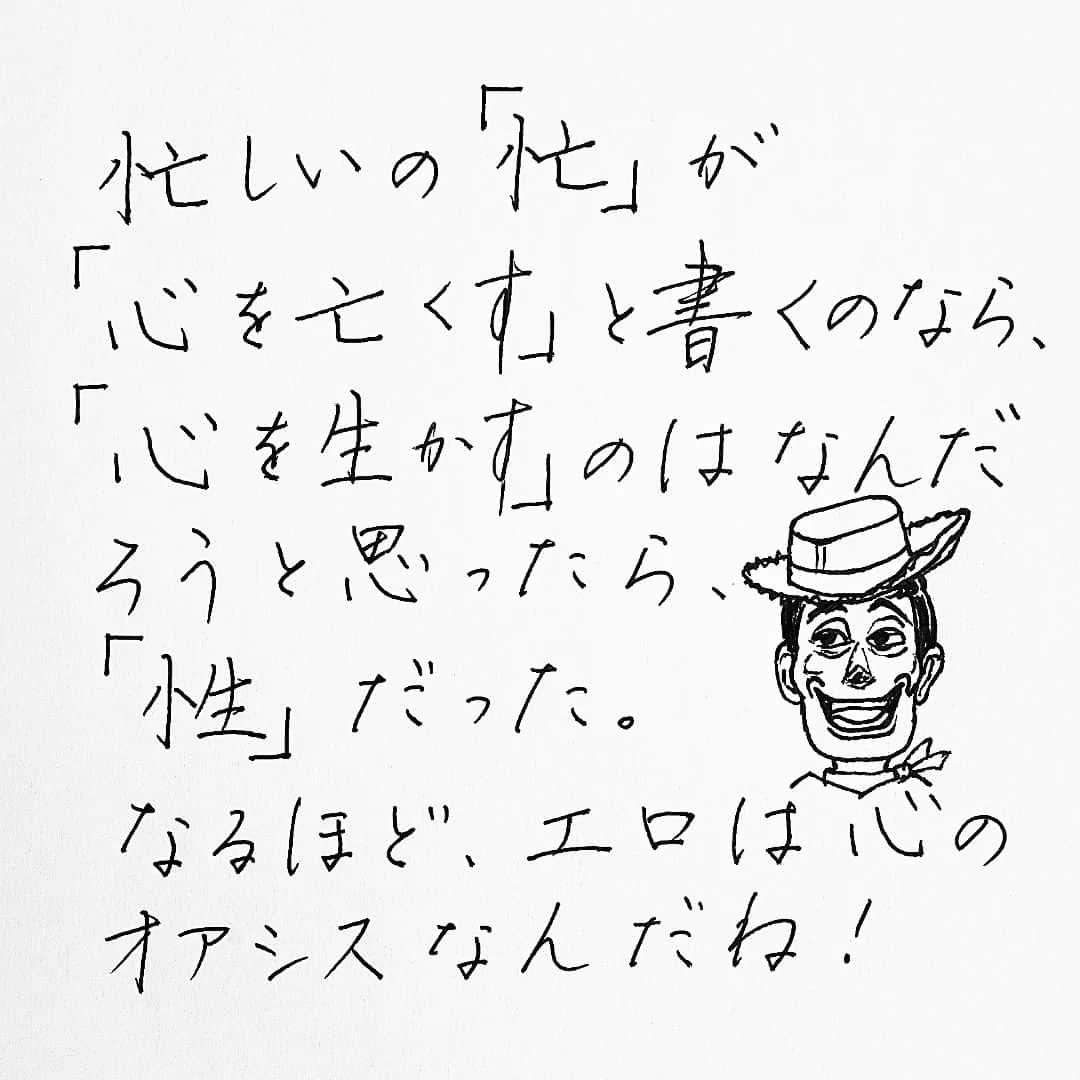 忙しいの「忙」が
「心を亡くす」と書くのなら、
「心を生かす」のはなんだ
ろうと思ったら、
「性」だった。
なるほど、エロは心の
オアシスなんだね！